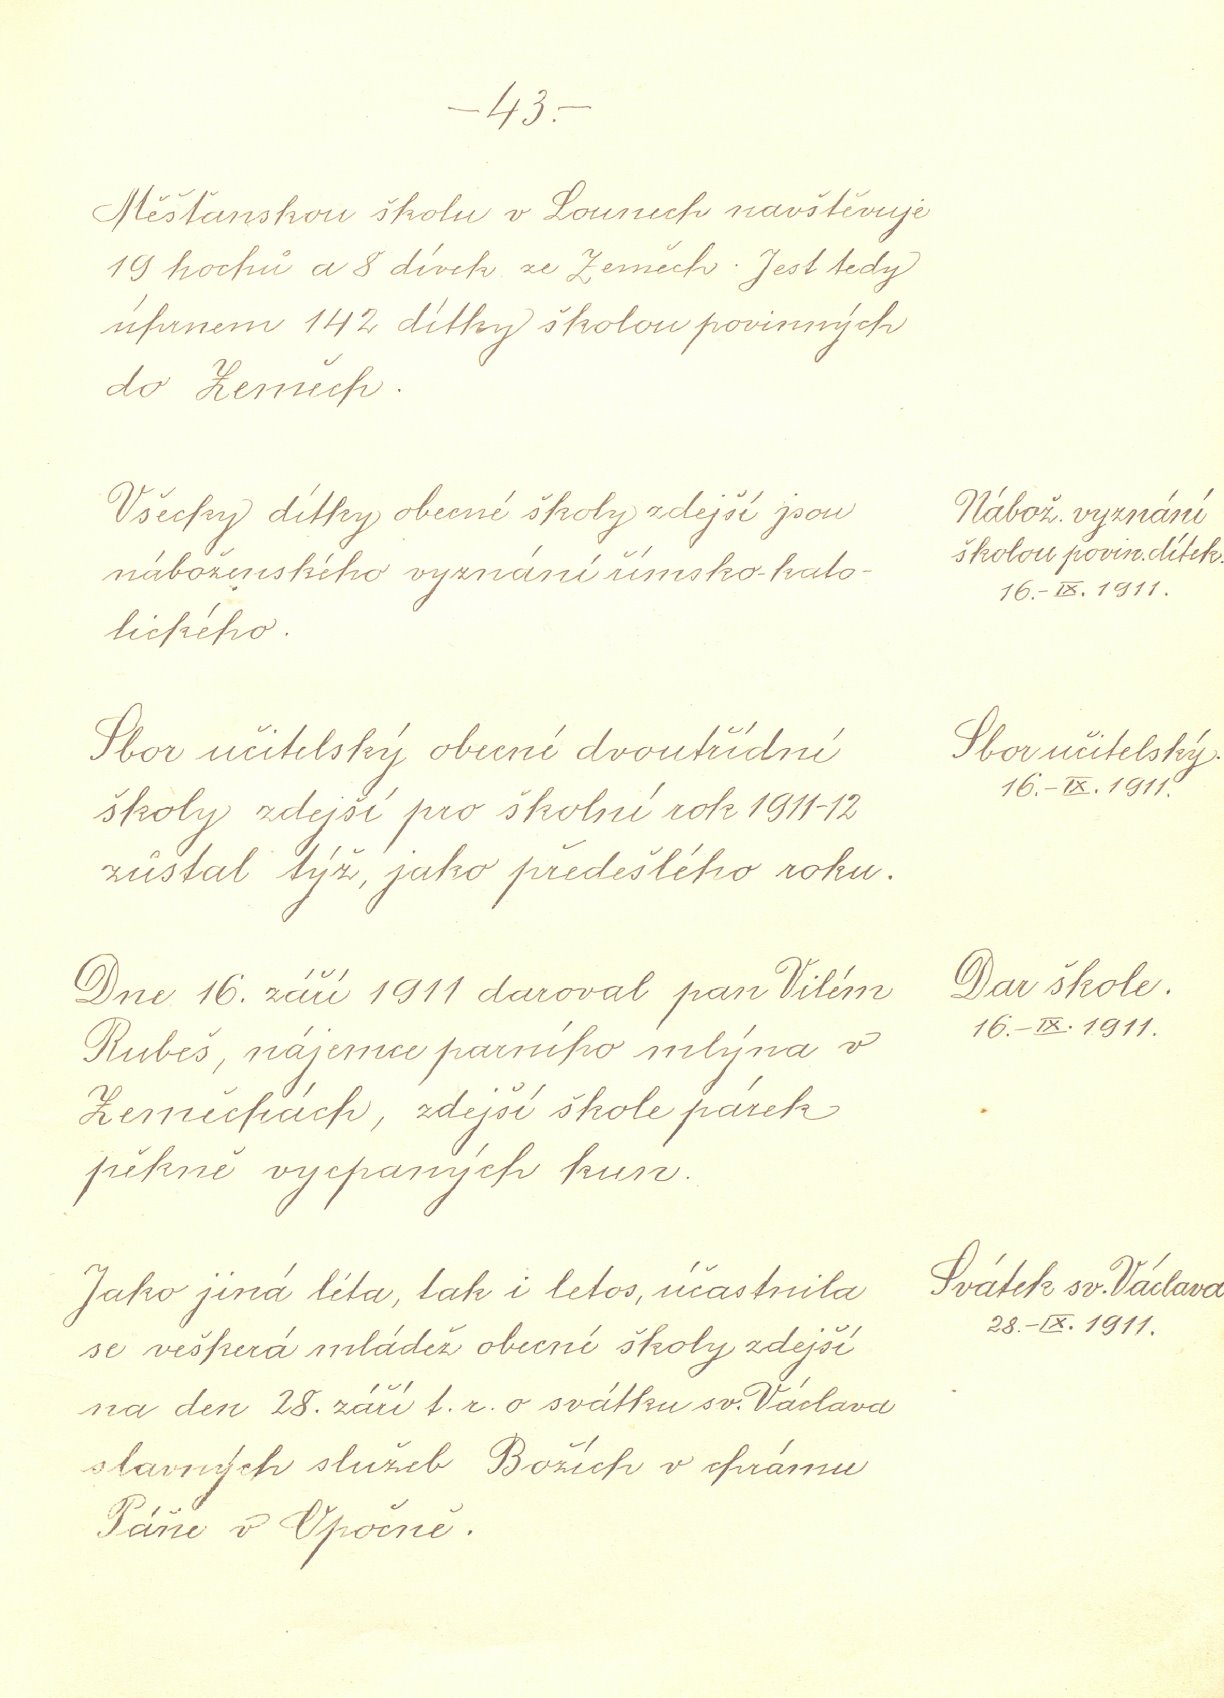 —43.—
Měšťanskou školu v Lounech navštěvuje
19 hochů a 8 dívek ze Zeměch. Jest tedy
úhrnem 142 dítky školou povinných
do Zeměch.
Všecky dítky obecné školy zdejší jsou
náboženského vyznání římsko-kato-
lického.
Nábož. vyznání
školou povin. dítek.
16.-IX. 1911.
Sbor učitelský obecné dvoutřídní
školy zdejší pro školní rok 1911-12
zůstal týž, jako předešlého roku.
Sbor učitelský.
16.-IX. 1911.
Dne 16. září 1911 daroval pan Vilém
Rubeš, nájemce parního mlýna v
Zeměchách, zdejší škole párek
pěkně vycpaných kun.
Dar škole.
16.-IX. 1911.
Jako jiná léta, tak i letos, účastnila
se veškerá mládež obecné školy zdejší
na den 28. září t. r. o svátku sv. Václava
slavných služeb Božích v chrámu
Páně v Opočně.
Svátek sv. Václava
28.-IX. 1911.